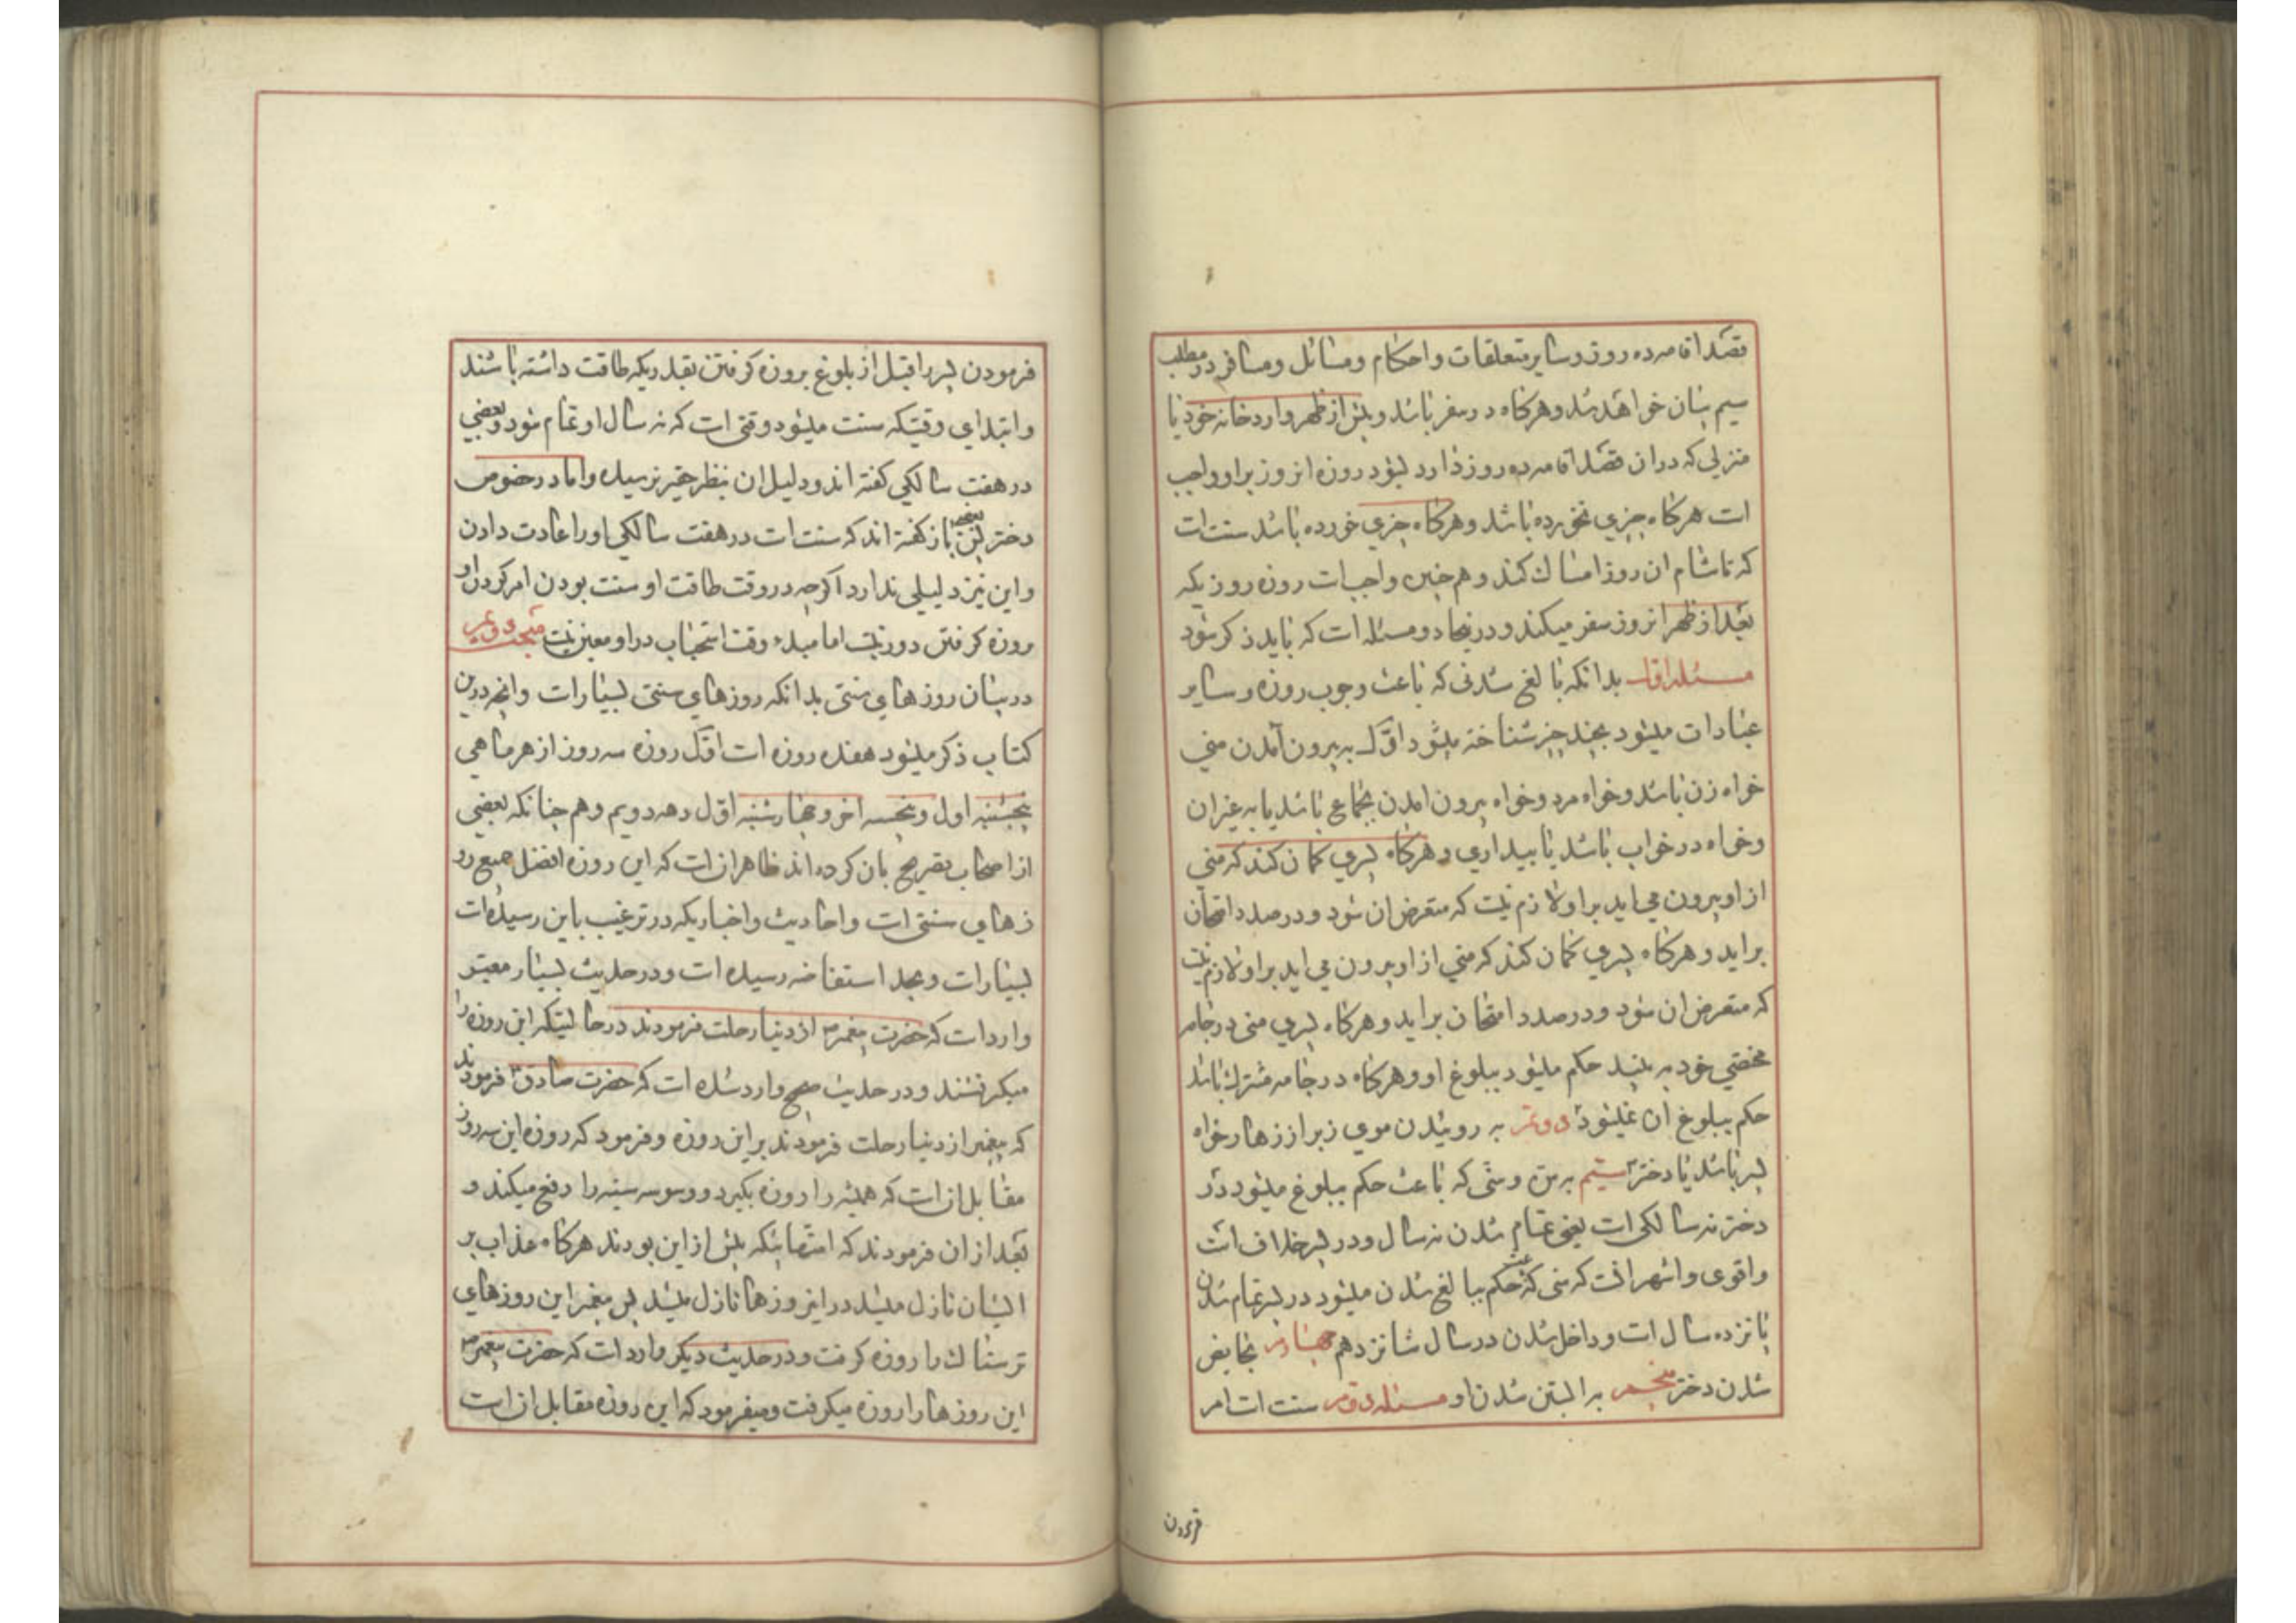 قصد اقامه ده روز و سایر متعلقات و احکام و مسائل و مسافر در مطلب
سیم بیان خواهد شد و هرکاه در سفر باشد و پیش از ظهر وارد خانه خود یا
منزلی که در ان قصد اقامه ده روز دارد بشود روزه انروز بر او واجب
است هرکاه چیزی نخورده باشد و هرکاه چیزی خورده باشد سنت است
که تا شام ان روز امساک کند و هم چنین واجبست روزه روزیکه
بعد از ظهر انروز سفر میکند و در اینجا دو مسئله است که باید ذکر شود
مسئله اول بدانکه بالغ شدنی که باعث وجوب روزه و سایر
عبادات میشود بچند چیز شناخته میشود اول به بیرون آمدن منی
خواه زن باشد و خواه مرد و خواه بیرون امدن بجماع باشد یا به غیر ان
و خواه در خواب باشد یا بیداری و هرکاه پسری کمان کند که منی
از او بیرون می اید بر او لازم نیست که متعرض ان شود و در صدد امتحان
بر اید و هرکاه پسری کمان کند که منی از او بیرون می اید بر او لازم نیست
که متعرض ان شود و در صدد امتحان بر اید و هرکاه پسری منی در جامه
مختصی خود به بیند حکم میشود ببلوغ او و هرکاه در جامه مشترک باشد
حکم ببلوغ ان نمیشود دویم به روئیدن موی زبر از زهار خواه
پسر باشد یا دختر سیم به سن و سنی که باعث حکم ببلوغ میشود در
دختر نه سالکی است یعنی تمام شدن نه سال و در پسر خلاف است
و اقوی و اشهر انست که سنی که باعث حکم ببالغ شدن میشود در پسر تمام شدن
پانزده سال است و داخل شدن در سال شانزدهم چهارم بحایض
شدن دختر پنجم به ابستن شدن او مسئله دویم سنت است امر
فرمودن
فرمودن پسر را قبل از بلوغ بروزه کرفتن بقدریکه طاقت داشته باشند
و ابتدای وقتیکه سنت میشود وقتی است که نه سال او تمام شود و بعضی
در هفت سالکی کفته اند و دلیل ان بنظر حقیر نرسیده و اما در خصوص
دختر پس بعضی باز کفته اند که سنت است در هفت سالکی او را عادت دادن
و این نیز دلیلی ندارد اکرچه در وقت طاقت او سنت بودن امر کردن او
بروزه کرفتن دور نیست اما مبدء وقت استحباب در او معین نیست مبحث دویم
در بیان روزهای سنتی بدانکه روزهای سنتی بسیار است و انچه درین
کتاب ذکر میشود هفده روزه است اول روزه سه روز از هر ماهی
پنجشنبه اول و پنجشنبه اخر و چهارشنبه اول دهه دویم و هم چنانکه بعضی
از اصحاب تصریح بان کرده اند ظاهر انست که این روزه افضل جمیع رو
زهای سنتی است و احادیث و اخباریکه در ترغیب باین رسیده است
بسیار است و بحد استفاضه رسیده است و در حدیث بسیار معتبر
وارد است که حضرت پیغمبر ص از دنیا رحلت فرمودند در حالتیکه این روزه را
میکرفتند و در حدیث صحیح وارد شده است که حضرت صادق ع فرمودند
که پیغمبر از دنیا رحلت فرمودند بر این روزه و فرمود که روزه این سه روز
مقابل ان است که همیشه را روزه بکیرد و وسوسه سینه را دفع میکند و
بعد از ان فرمودند که امتهائیکه پیش از این بودند هرکاه عذاب بر
ایشان نازل میشد در اینروزها نازل میشد پس پیغمبر این روزهای
ترسناک را روزه کرفت و در حدیث دیکر وارد است که حضرت پیغمبر ص
این روزها را روزه میکرفت و میفرمود که این روزه مقابل ان است